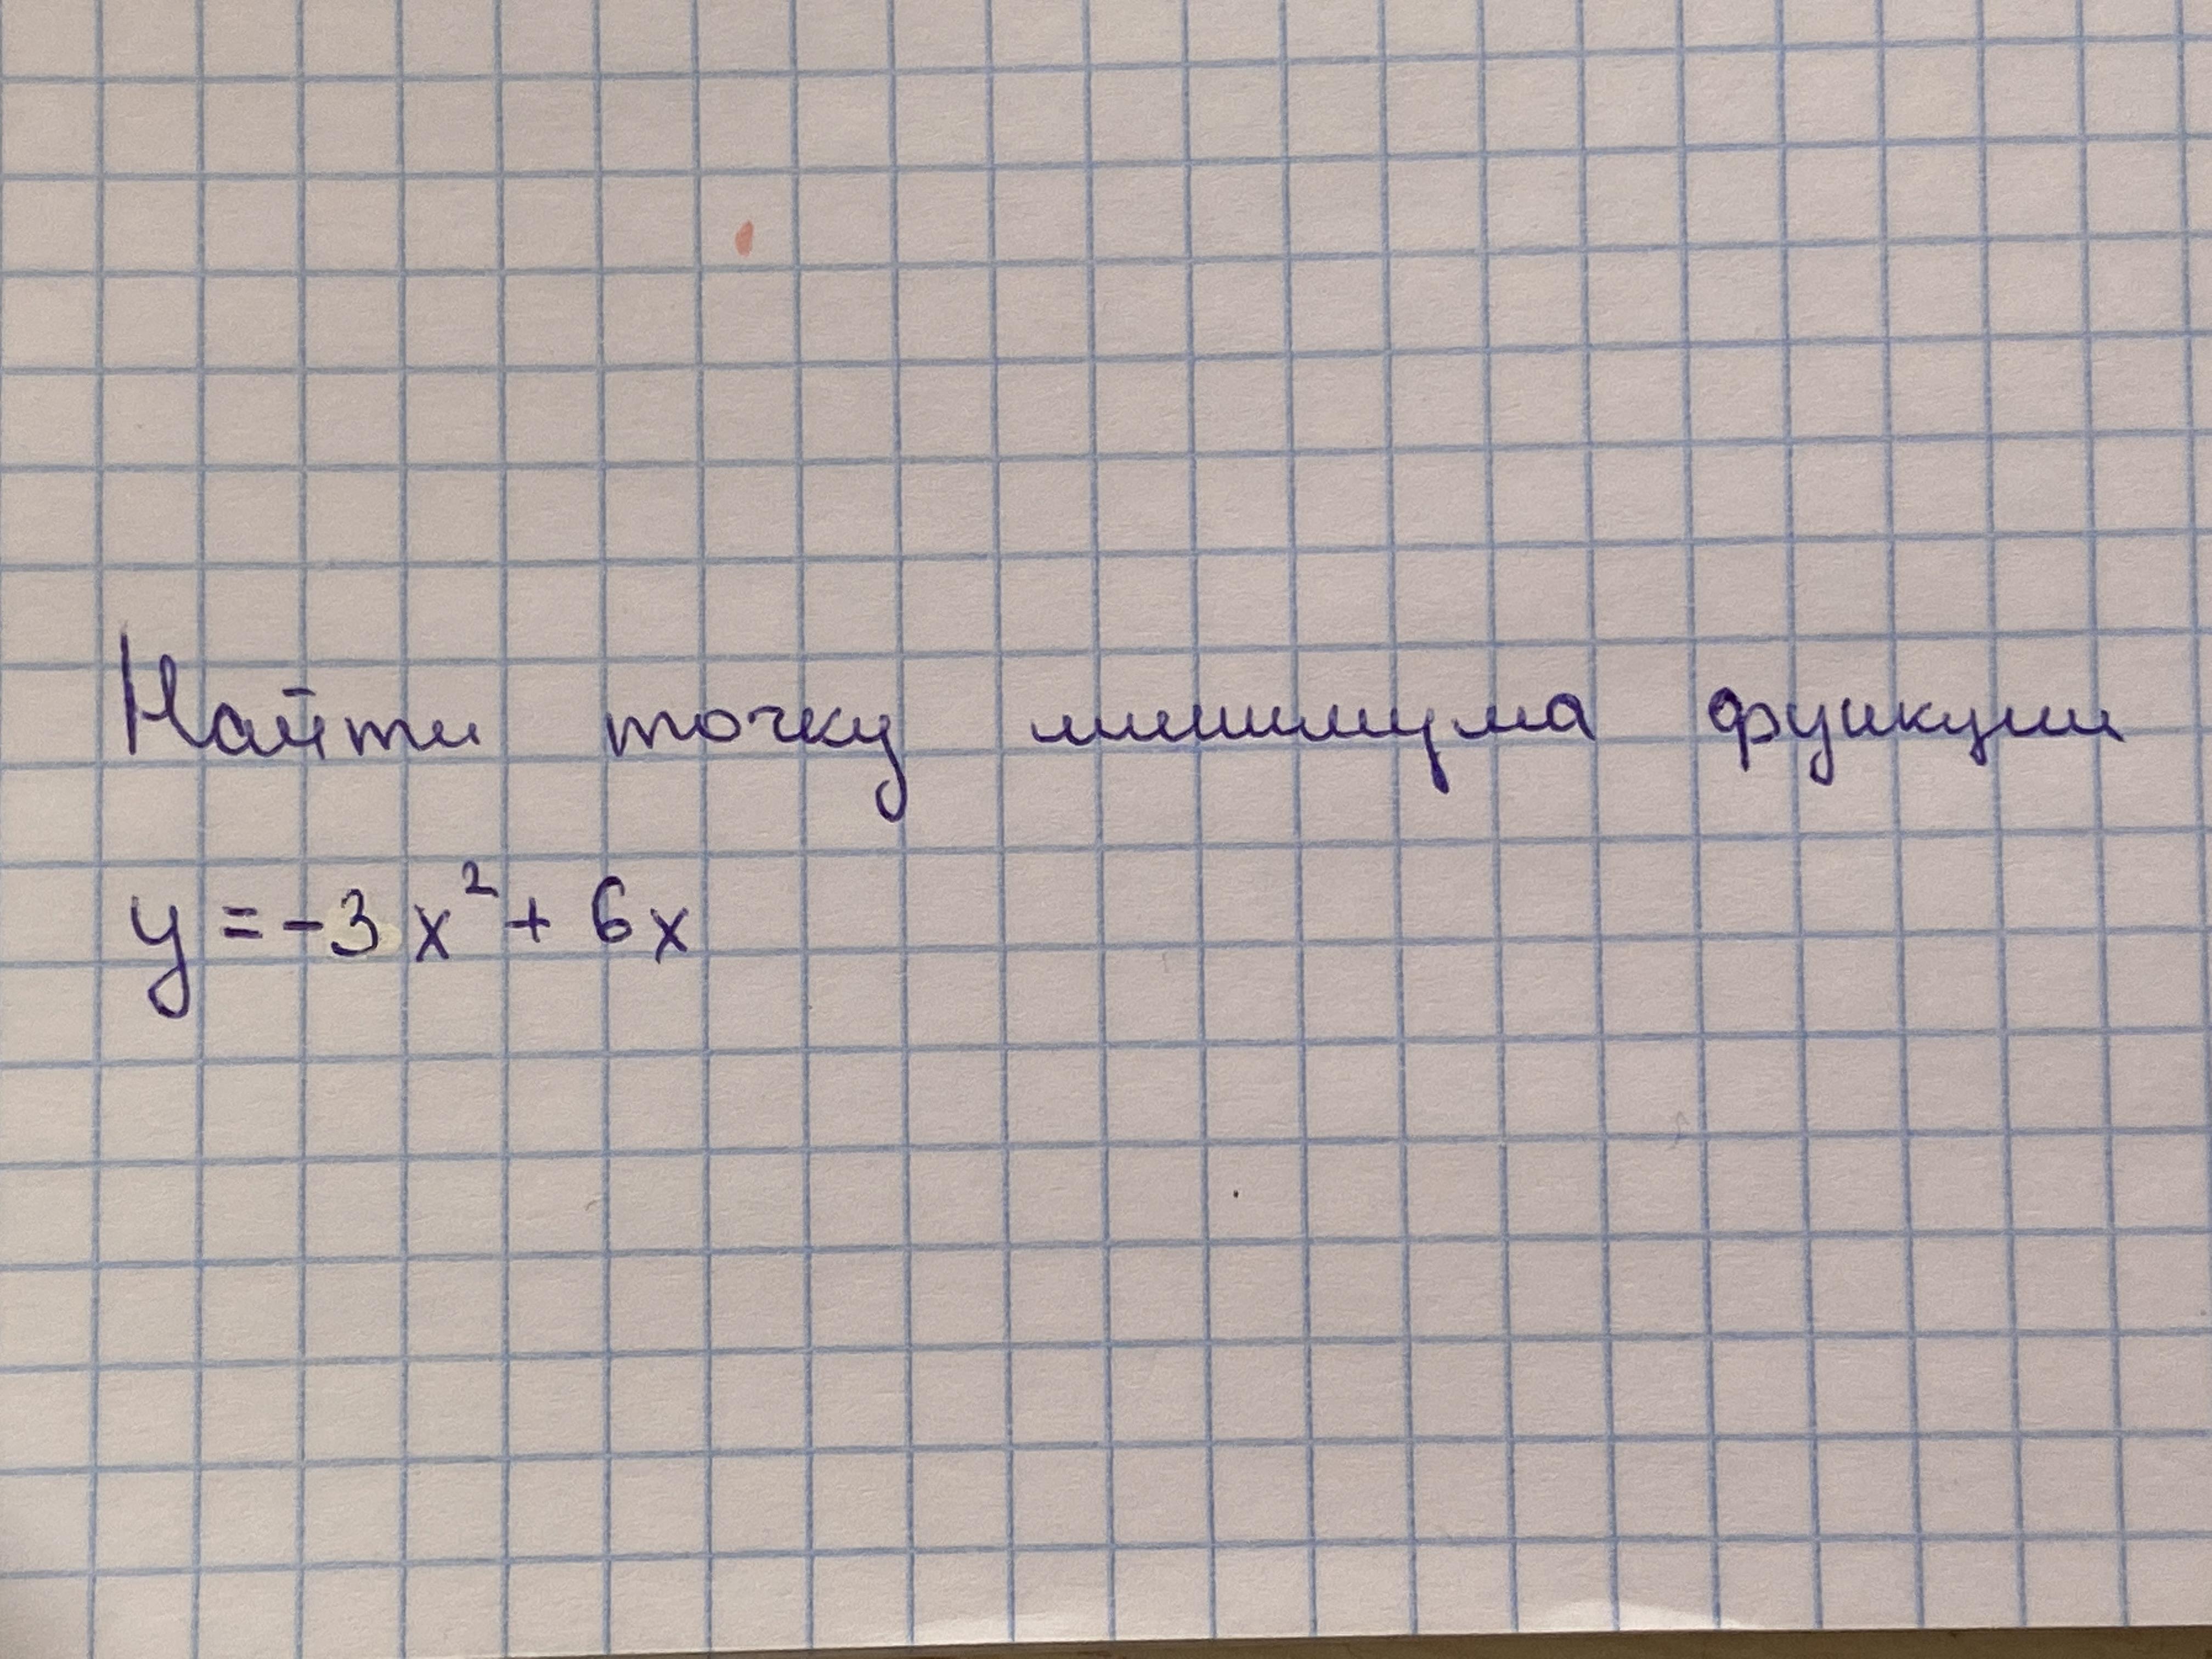 Найти точку минимума функции
y = -3x² + 6x